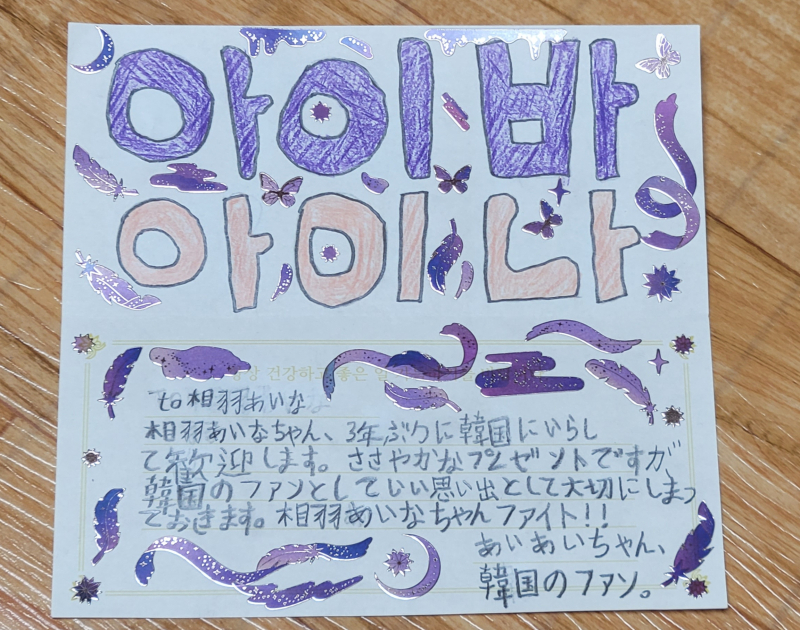 아이바
아이나
항상 건강하고 좋은 일
to 相羽あいな
相羽あいなちゃん、3年ぶりに韓国にいらし
て歓迎します。ささやかなプレゼントですが
韓国のファンとしていい思い出として大切にしまっ
ておきます。相羽あいなちゃんファイト!!
あいあいちゃん、
韓国のファン。